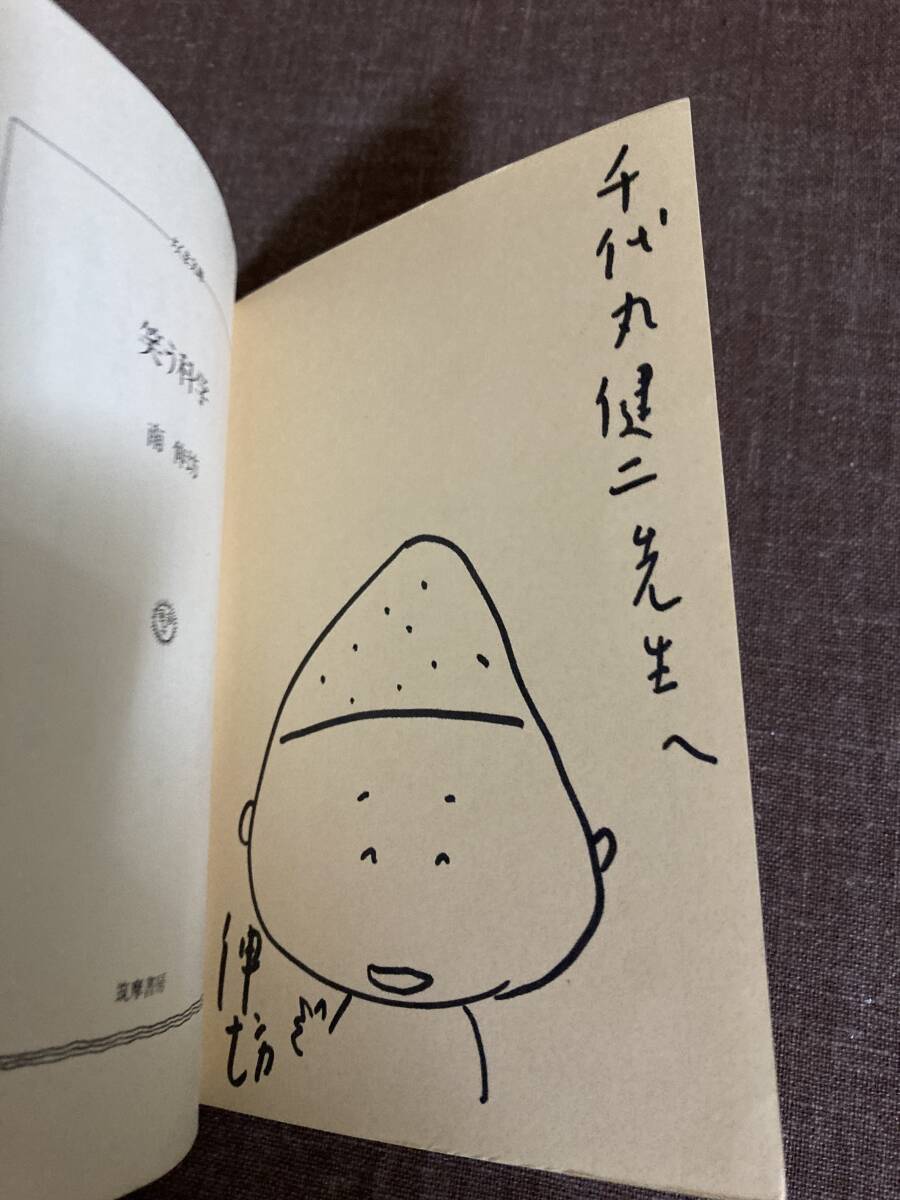 千代丸健二先生へ
伸坊
ちくま文庫
笑う科学
南 伸坊
筑摩書房